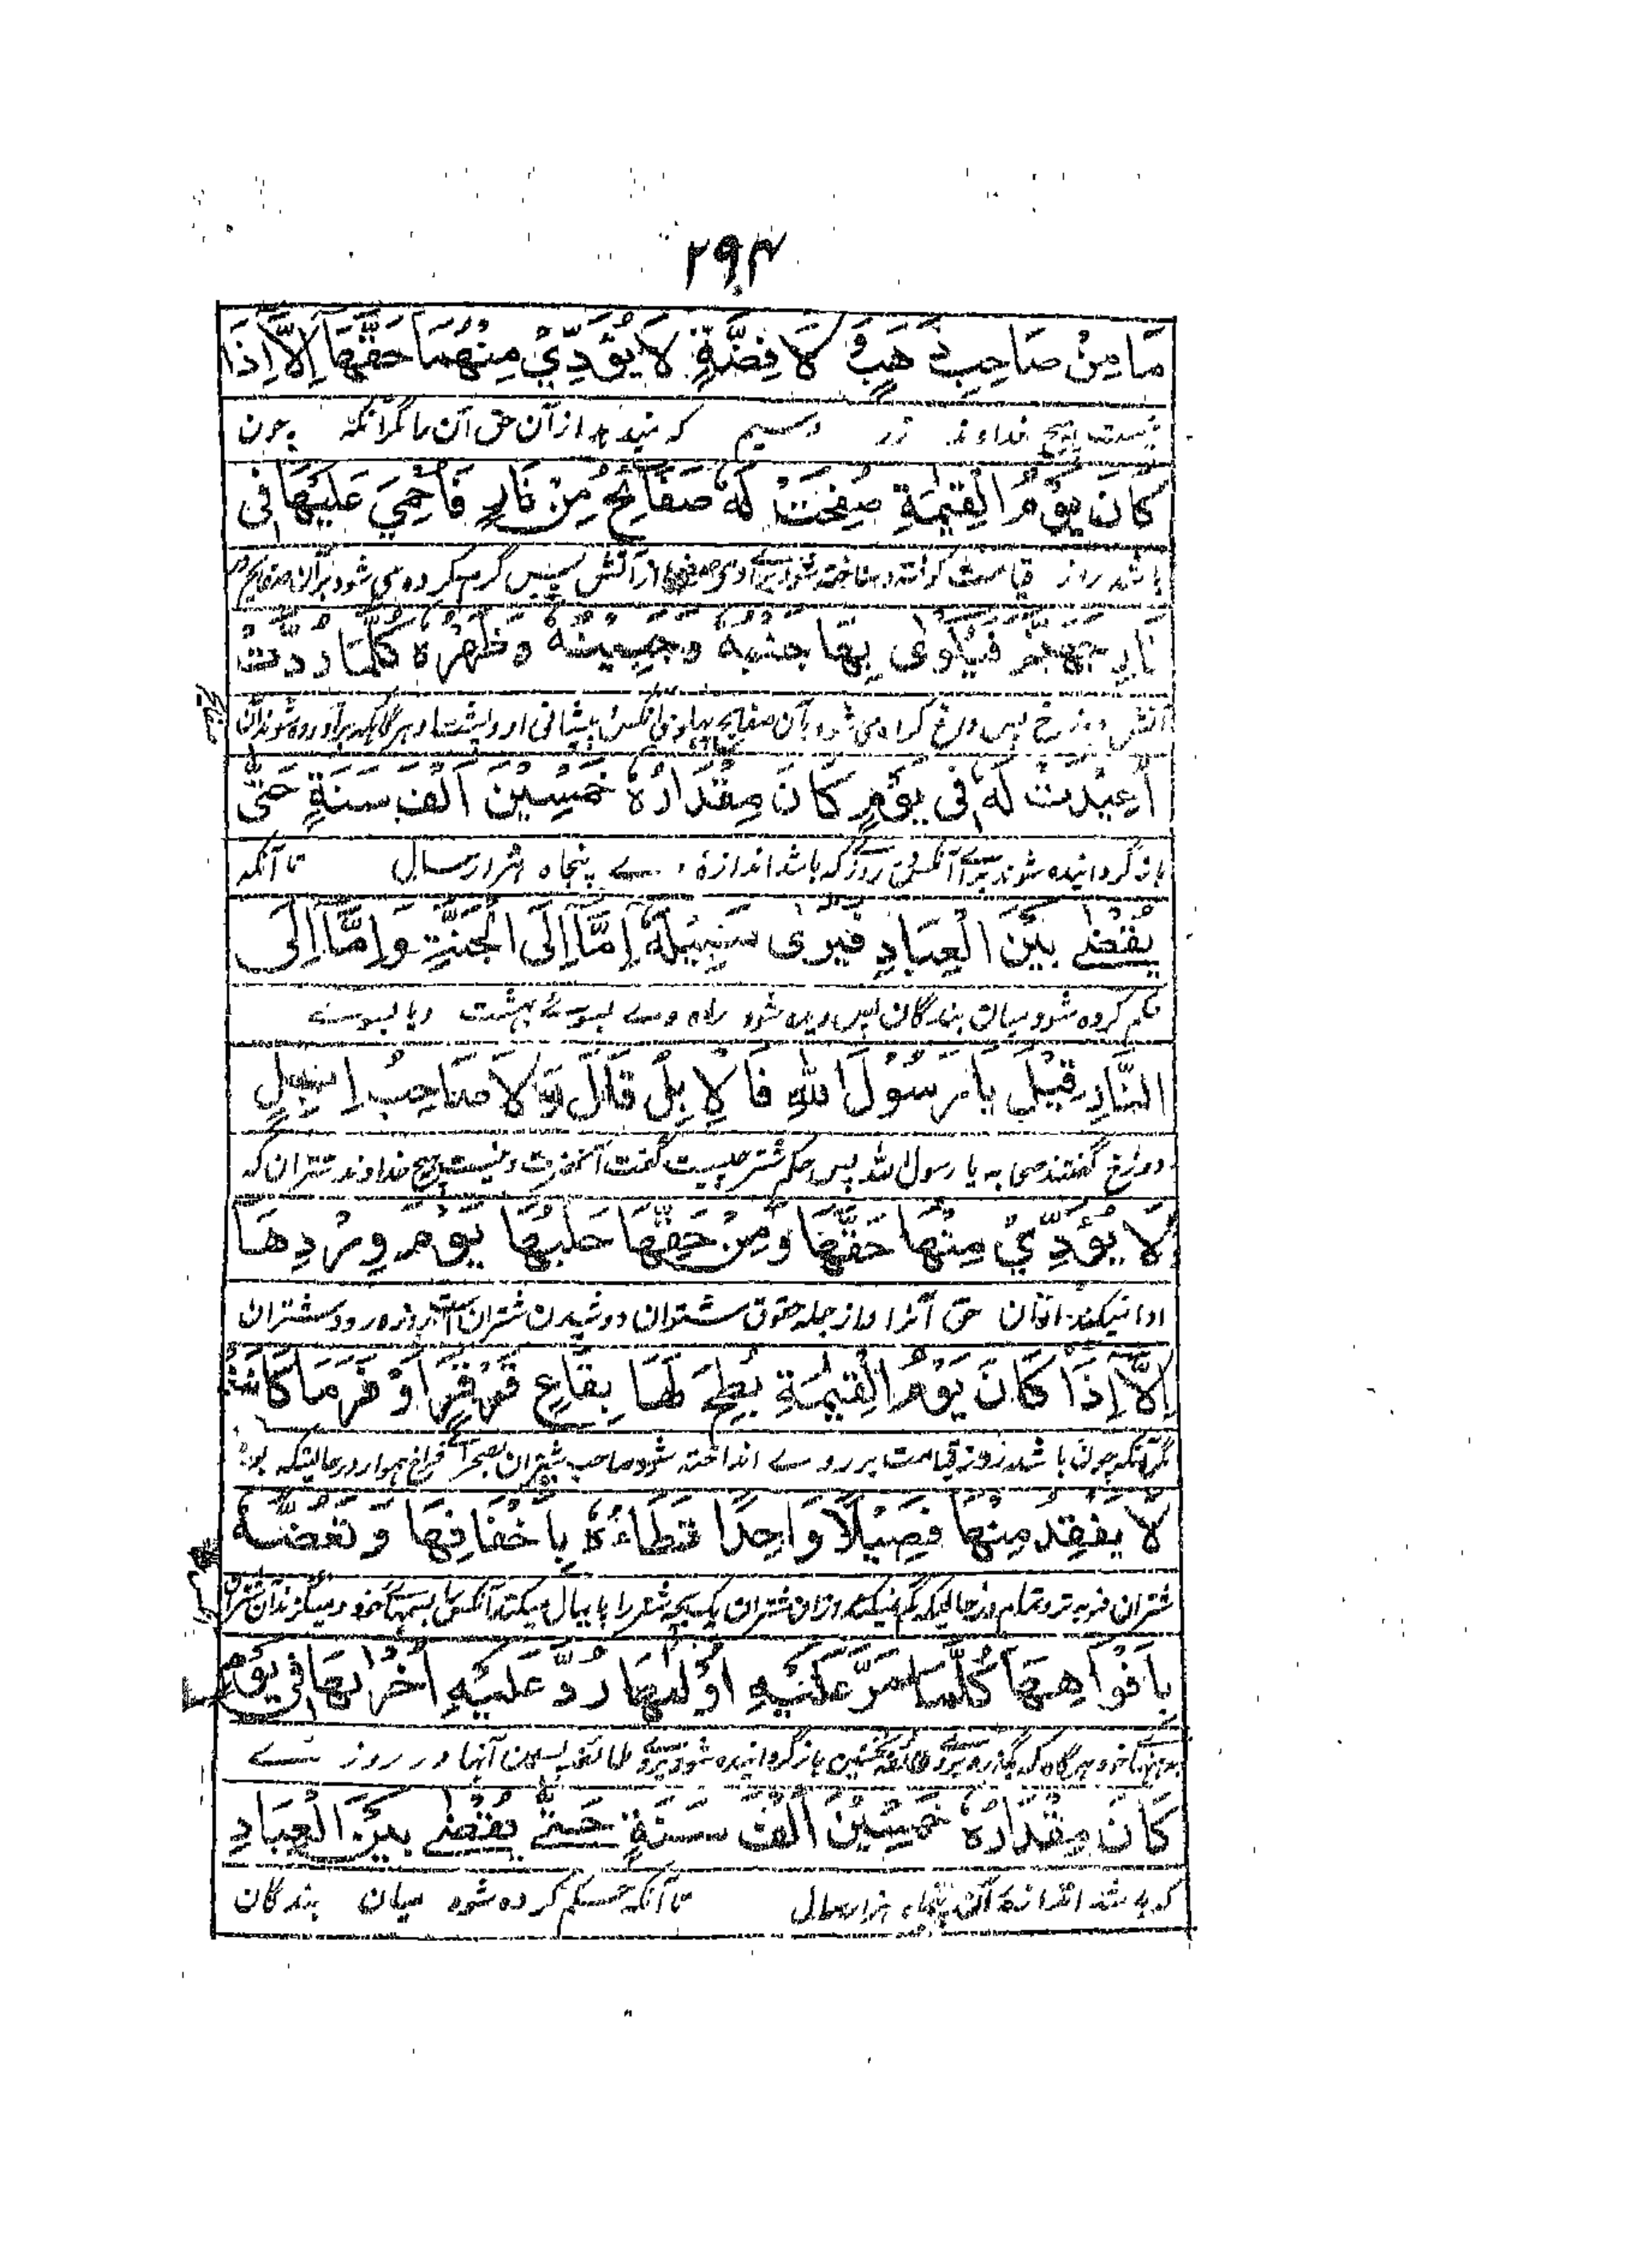 ۲۹۴
مَا مِنْ صَاحِبِ ذَهَبٍ وَّلَا فِضَّةٍ لَا يُؤَدِّيْ مِنْهَا حَقَّهَا اِلَّا اِذَا
نیست هیچ خداوند زر و سیم که نمیدهد از آن حق آن را مگر آنکه چون
كَانَ يَوْمُ الْقِيٰمَةِ صُفِحَتْ لَهٗ صَفَائِحُ مِنْ نَارٍ فَاُحْمِيَ عَلَيْهَا فِي
باشد روز قیامت از آتش پس گرم کرده می شود بر آن صفایح در
نَارِ جَهَنَّمَ فَيُكْوٰى بِهَا جَنْبُهٗ وَجَبِيْنُهٗ وَظَهْرُهٗ كُلَّمَا رُدَّتْ
آتش دوزخ پس داغ کرده می شود بآن صفایح پیشانی او و پشت او هرگاه که
اُعِيْدَتْ لَهٗ فِيْ يَوْمٍ كَانَ مِقْدَارُهٗ خَمْسِيْنَ اَلْفَ سَنَةٍ حَتّٰى
باز گردانیده شوند برای آنکس در روزے که باشد اندازهٔ وے پنجاه هزار سال تا آنکه
يُقْضٰے بَيْنَ الْعِبَادِ فَيُرٰى سَبِيْلُهٗ اِمَّا اِلَى الْجَنَّةِ وَاِمَّا اِلَى
حکم کرده شود میان بندگان پس دیده شود راه وے بسوے بهشت و یا بسوے
النَّارِ قِيْلَ يَا رَسُوْلَ اللّٰهِ فَالْاِبِلُ قَالَ وَلَا صَاحِبُ اِبِلٍ
دوزخ گفتند صحابه یا رسول الله پس حکم شتر چیست گفت آنحضرت و نیست هیچ خداوند شتران که
لَا يُؤَدِّيْ مِنْهَا حَقَّهَا وَمِنْ حَقِّهَا حَلْبُهَا يَوْمَ وِرْدِهَا
ادا نمیکند از آن حق آنرا و از جمله حقوق شتران دوشیدن شتران است روز ورود شتران
اِلَّا اِذَا كَانَ يَوْمُ الْقِيٰمَةِ بُطِحَ لَهَا بِقَاعٍ قَرْقَرٍ اَوْفَرَ مَا كَانَتْ
مگر آنکه چون باشد روز قیامت بر روے انداخته شود صاحب شتران بصحرائے فراخ هموار در حالتیکه بود
لَا يَفْقِدُ مِنْهَا فَصِيْلًا وَاحِدًا تَطَاءُهٗ بِاَخْفَافِهَا وَتَعَضُّهٗ
شتران فربه تر و تمام در حالیکه گم نمیکند از آن شتران یک بچه شتر را پایمال میکنند آنکس را
بِاَفْوَاهِهَا كُلَّمَا مَرَّ عَلَيْهِ اُوْلٰهَا رُدَّ عَلَيْهِ اُخْرٰهَا فِيْ يَوْمٍ
خود هرگاه که بگذرد باز گردانیده شود آنها در روزے
كَانَ مِقْدَارُهٗ خَمْسِيْنَ اَلْفَ سَنَةٍ حَتّٰے يُقْضٰے بَيْنَ الْعِبَادِ
که باشد اندازهٔ آن پنجاه هزار سال تا آنکه حکم کرده شود میان بندگان